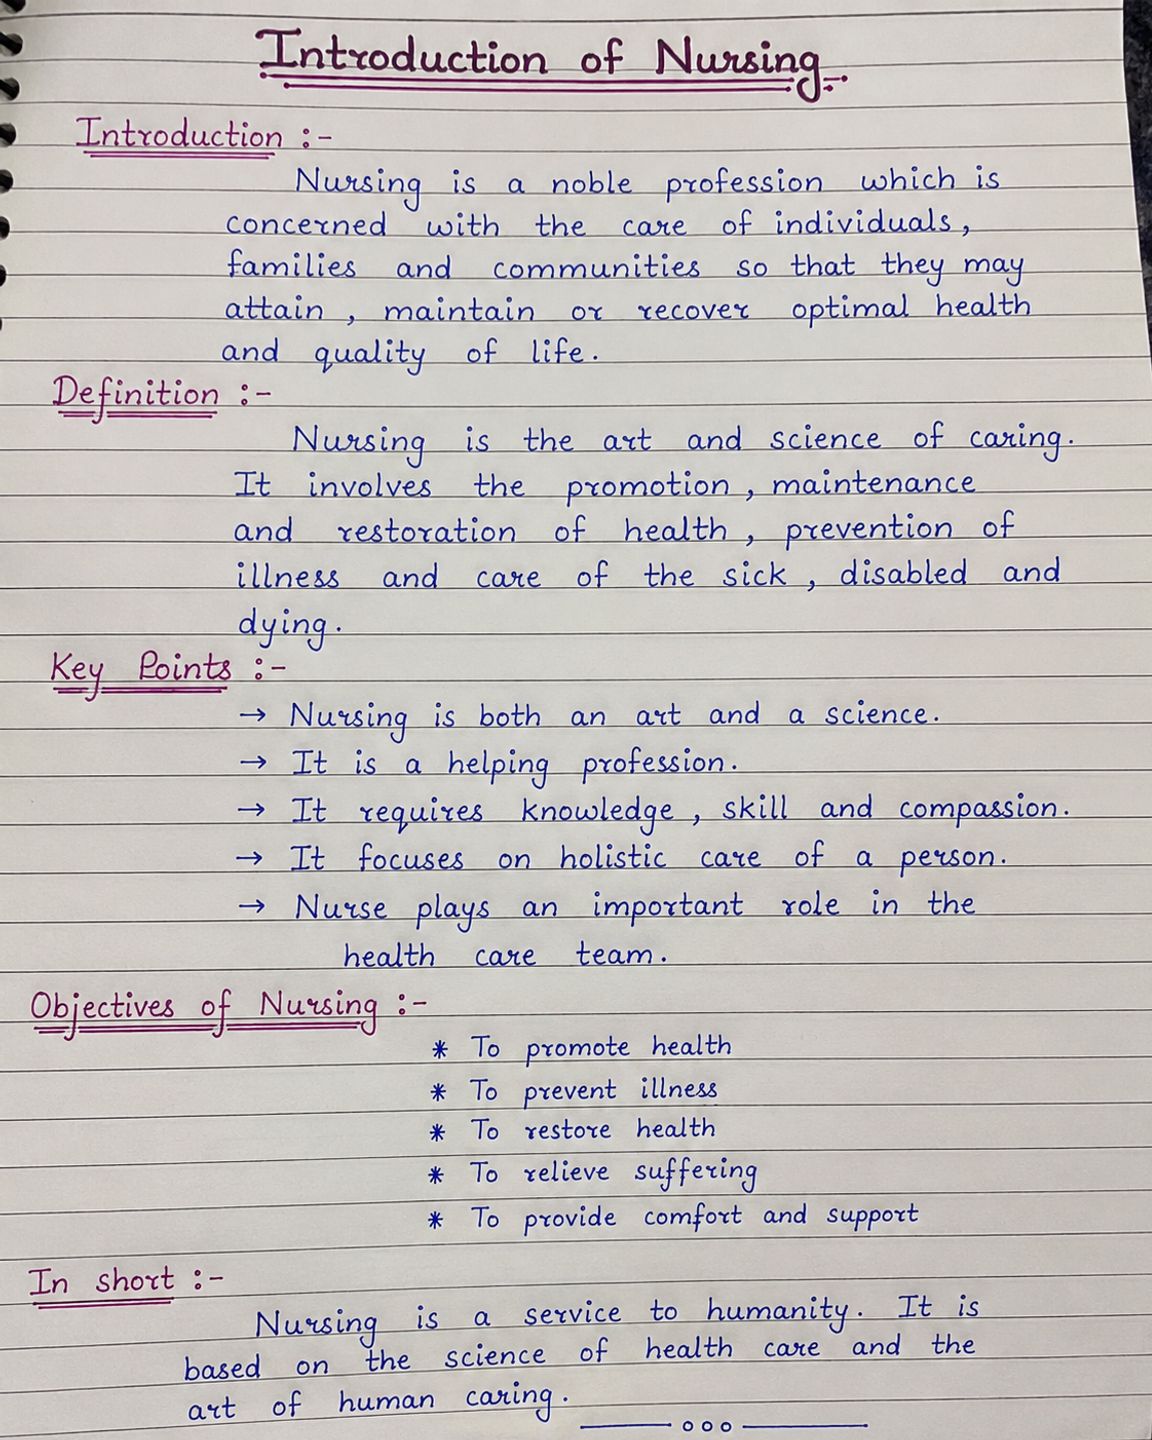 Introduction of Nursing
Introduction :-
Nursing is a noble profession which is
concerned with the care of individuals,
families and communities so that they may
attain , maintain or recover optimal health
and quality of life.
Definition :-
Nursing is the art and science of caring.
It involves the promotion , maintenance
and restoration of health , prevention of
illness and care of the sick , disabled and
dying.
Key Points :-
→ Nursing is both an art and a science.
→ It is a helping profession.
→ It requires knowledge , skill and compassion.
→ It focuses on holistic care of a person.
→ Nurse plays an important role in the
health care team.
Objectives of Nursing :-
* To promote health
* To prevent illness
* To restore health
* To relieve suffering
* To provide comfort and support
In short :-
Nursing is a service to humanity. It is
based on the science of health care and the
art of human caring.